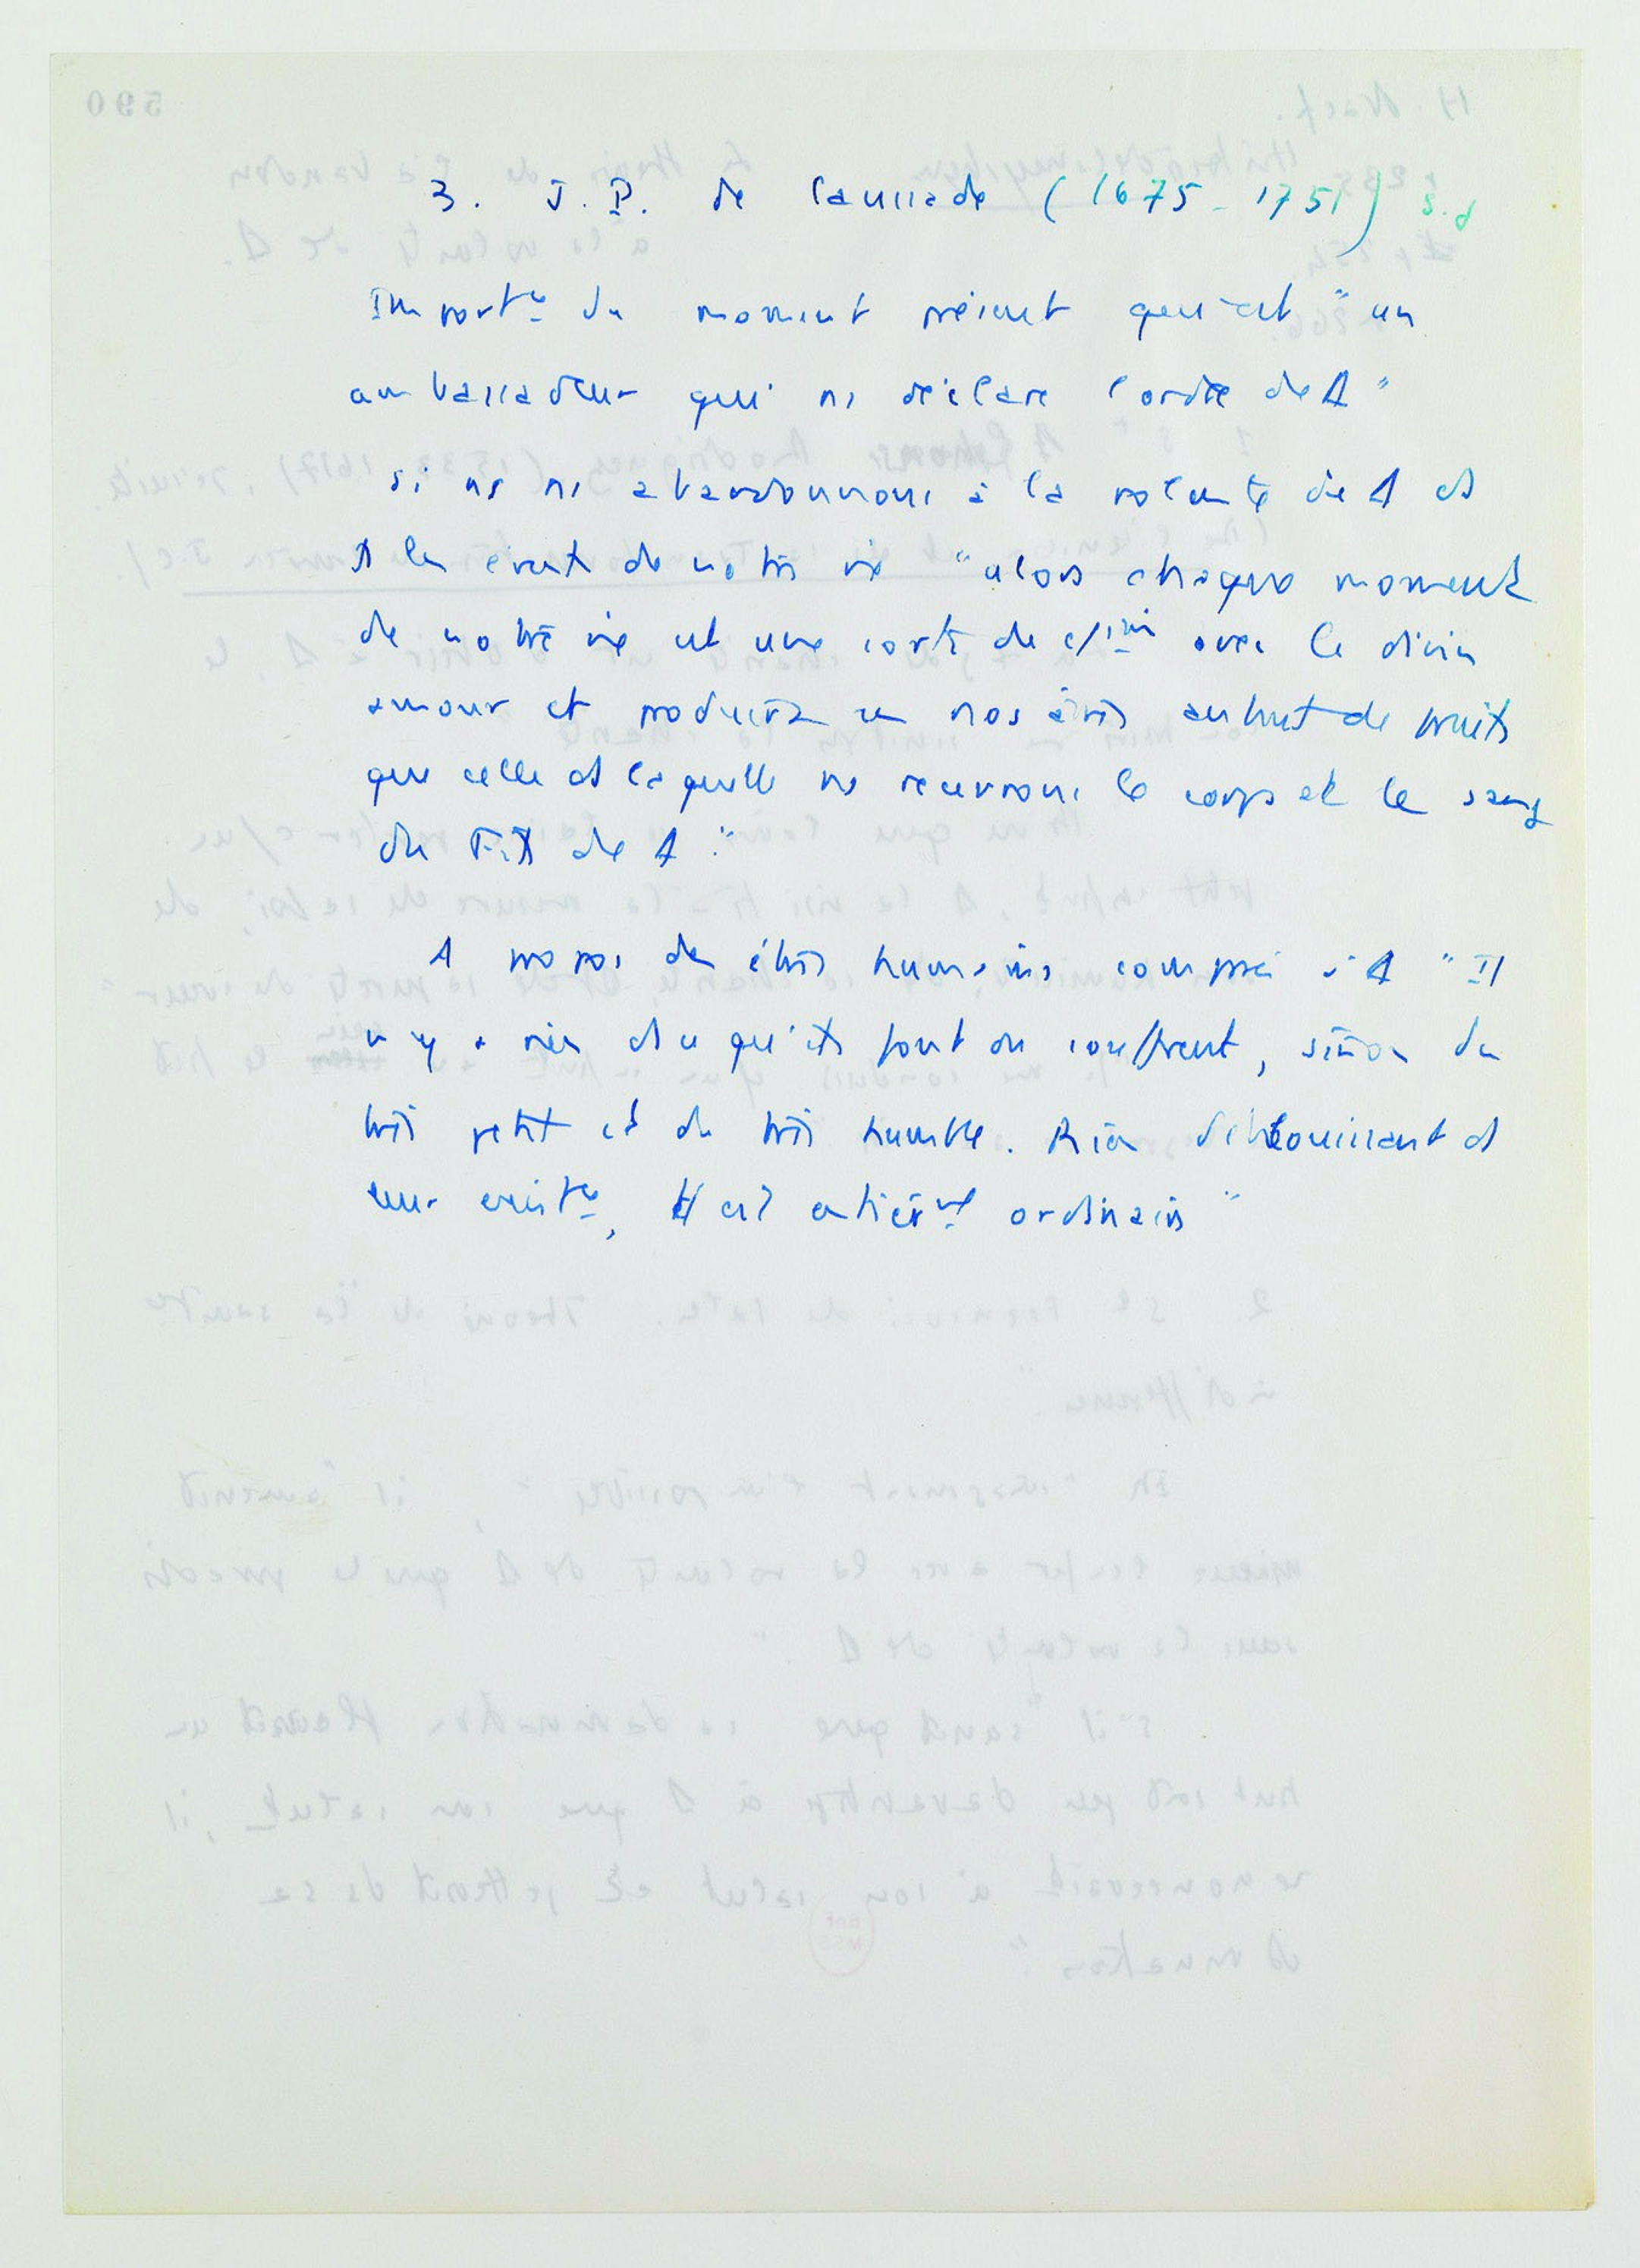 3. J.P. de Caussade (1675-1751) s.j
Importce du moment présent qui est "un
ambassadeur qui ns déclare l'ordre de Δ"
si ns ns abandonnons à la volonté de Δ ds
ts les évents de notre vie "alors chaque moment
de notre vie est une sorte de c/ion avec le divin
amour et produira en nos âmes autant de fruits
que celle ds laquelle ns recevrons le corps et le sang
du Fils de Δ."
A propos des êtres humains consacrés à Δ "Il
n'y a rien ds ce qu'ils font ou souffrent, sinon du
très petit et du très humble. Rien d'éblouissant ds
leur existce, tt est entièrmt ordinaire"